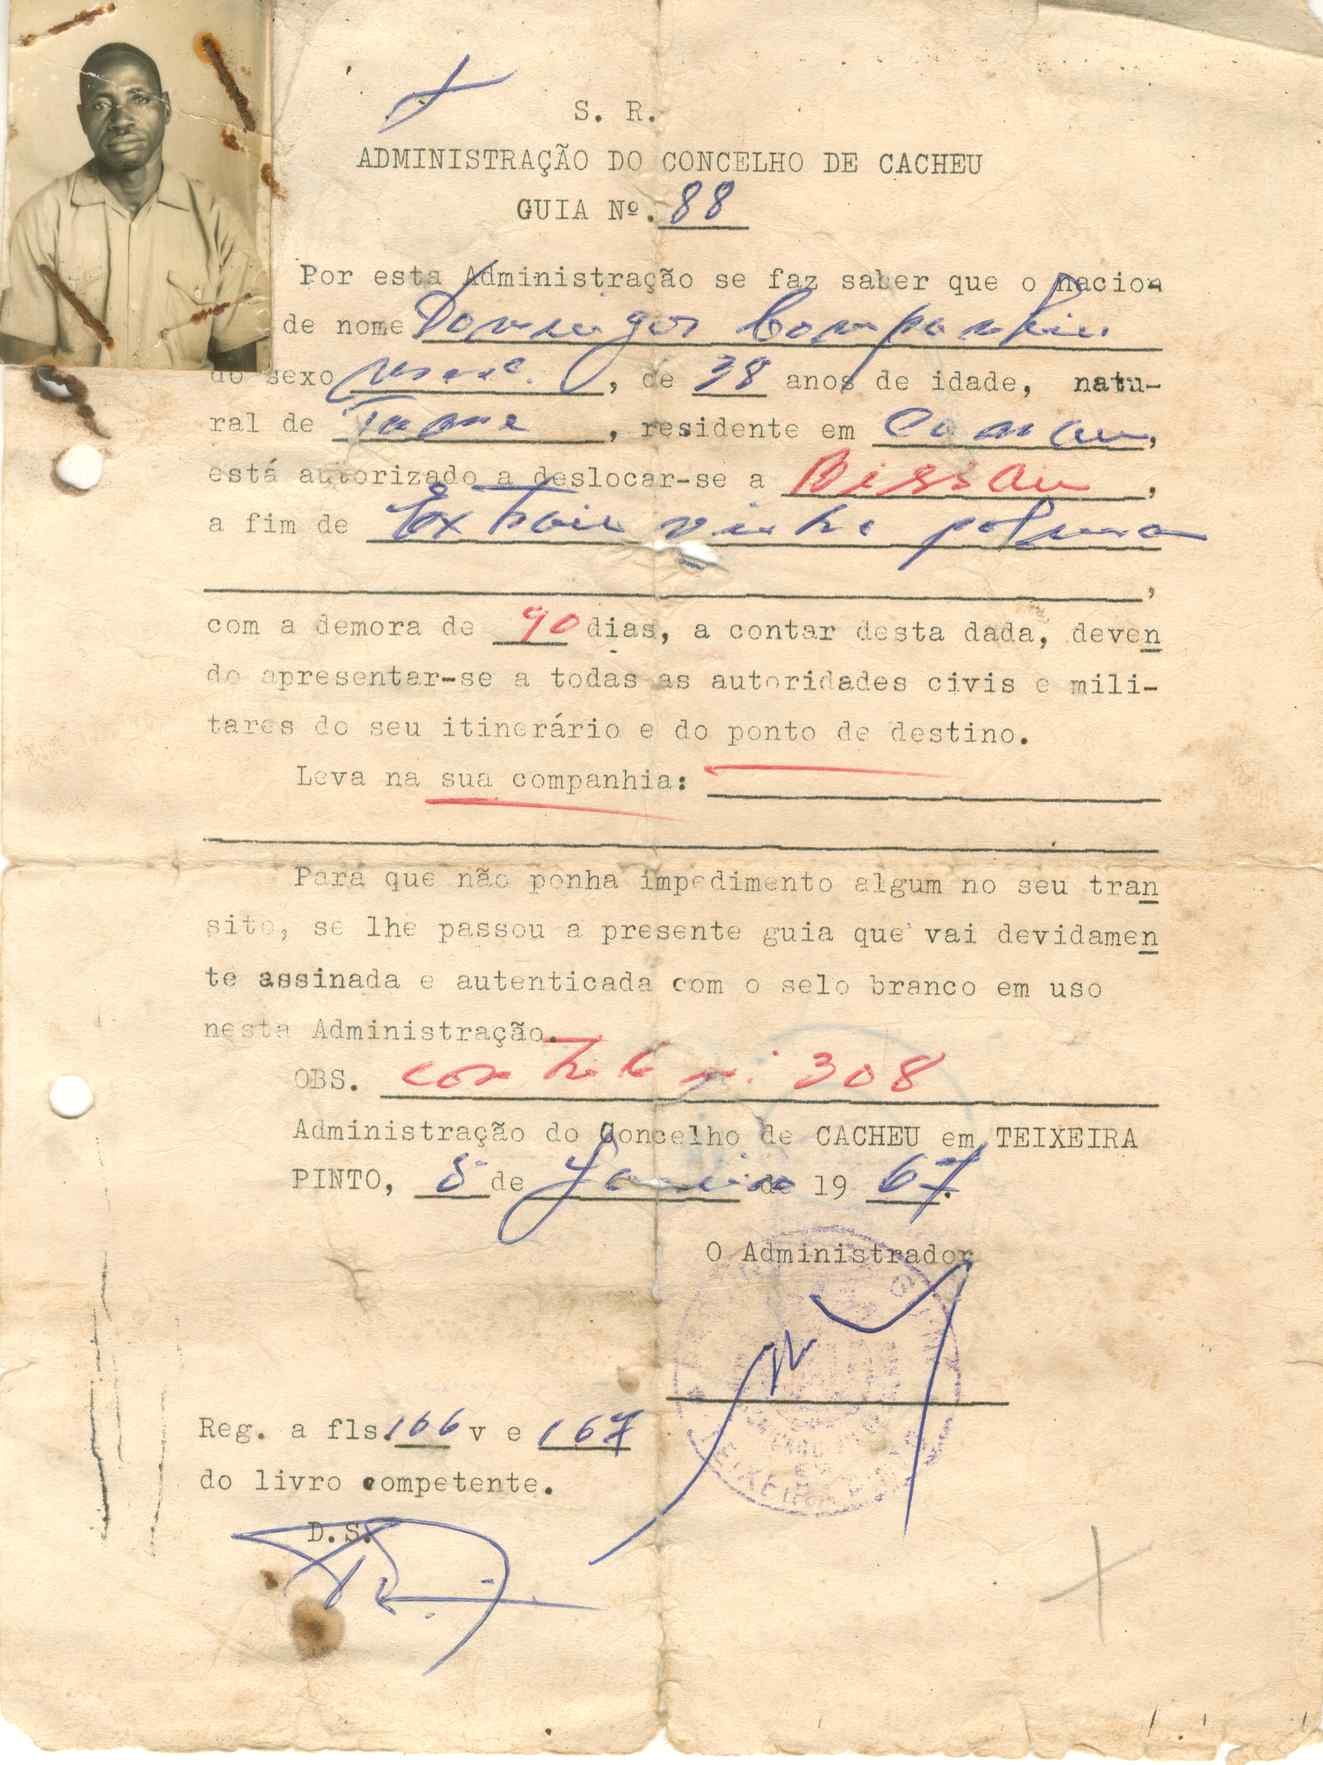 S. R.
ADMINISTRAÇÃO DO CONCELHO DE CACHEU
GUIA Nº. 88
Por esta Administração se faz saber que o nacion
de nome Domingos Companhia
do sexo masc. , de 38 anos de idade, natu-
ral de , residente em ,
está autorizado a deslocar-se a Bissau ,
a fim de Extrair vinho palma
,
com a demora de 90 dias, a contar desta dada, deven
do apresentar-se a todas as autoridades civis e mili-
tares do seu itinerário e do ponto de destino.
Leva na sua companhia:
Para que não ponha impedimento algum no seu tran
sito, se lhe passou a presente guia que vai devidamen
te assinada e autenticada com o selo branco em uso
nesta Administração.
OBS. 308
Administração do Concelho de CACHEU em TEIXEIRA
PINTO, 5 de Janeiro de 19 67.
O Administrador
Reg. a fls. 166 v e 167
do livro competente.
D.S.